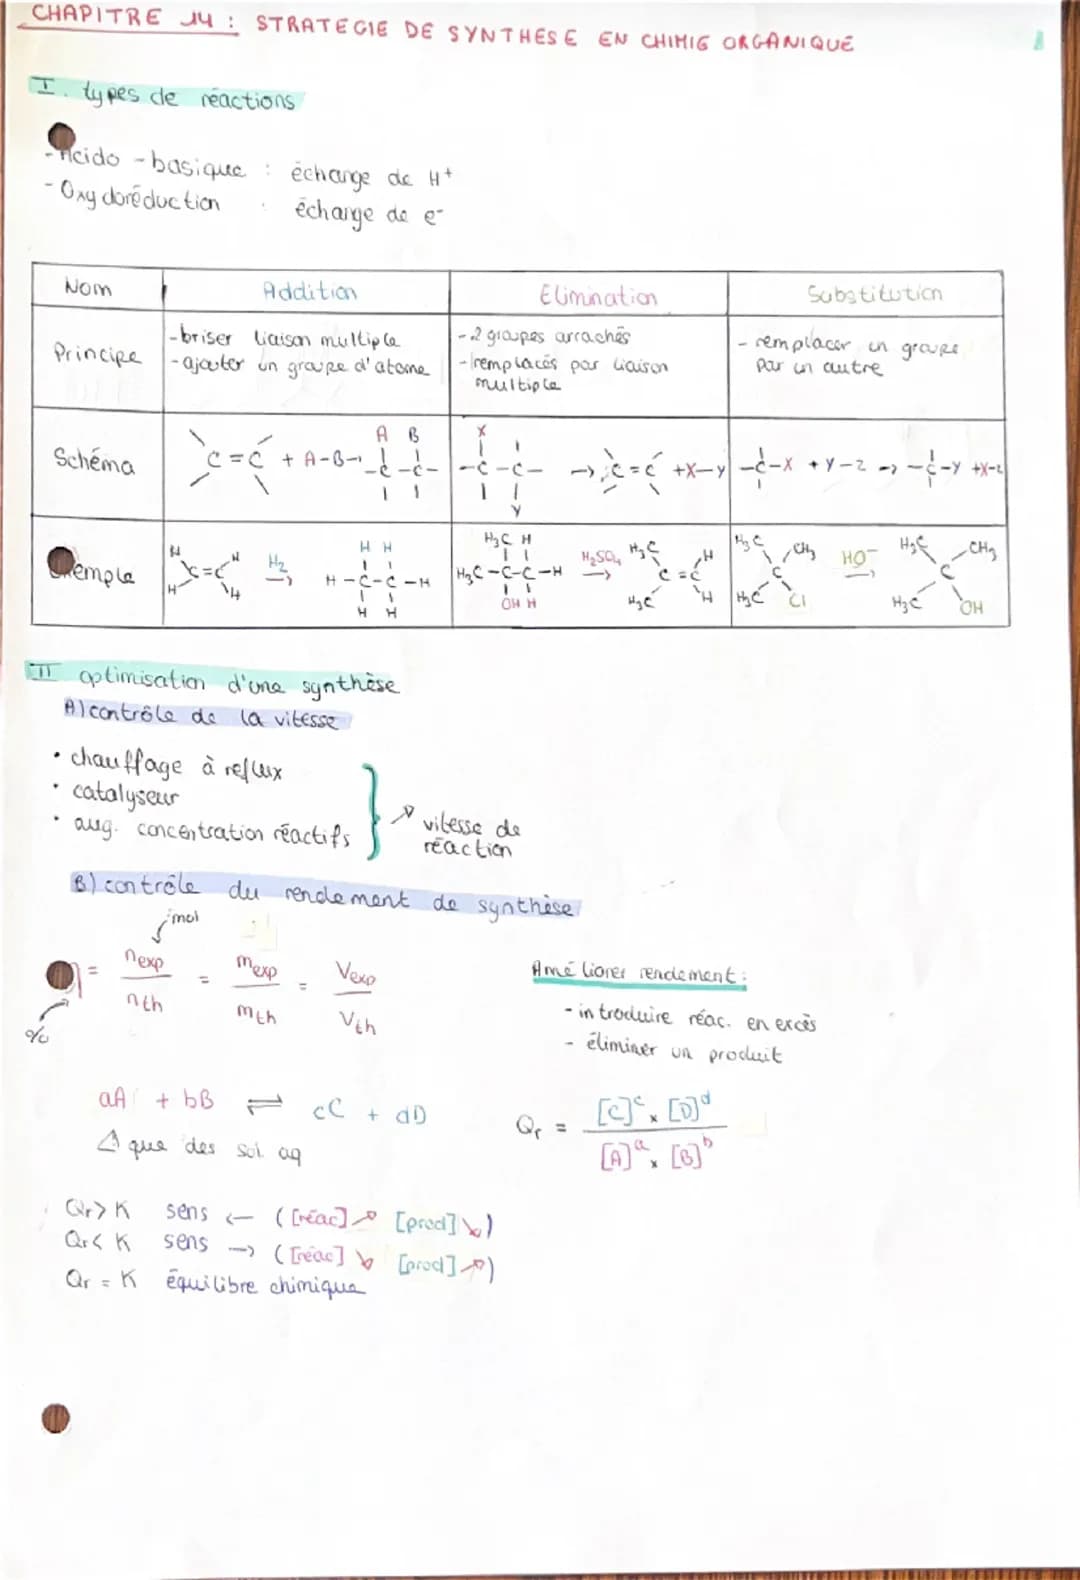 CHAPITRE 14 : STRATEGIE DE SYNTHESE EN CHIMIE ORGANIQUE
I. types de réactions
- Acido - basique : échange de H+
- Oxydoréduction : échange de e-
Nom Addition Elimination Substitution
Principe
- briser liaison multiple
- ajouter un groupe d'atome
- 2 groupes arrachés
- remplacés par liaison
multiple
- remplacer un groupe
par un autre
Schéma
A B
C = C + A-B → -C-C-
X
-C-C- → C = C + X-Y
Y
-C-X + Y-Z → -C-Y + X-Z
Exemple
H H H H
C=C H2 → H-C-C-H
H H H H
H3C H H3C H
H3C-C-C-H H2SO4 → C=C
OH H H3C H
H3C CH3 H3C CH3
C HO- → C
H3C Cl H3C OH
II optimisation d'une synthèse
A) contrôle de la vitesse
• chauffage à reflux
• catalyseur
• aug. concentration réactifs
↗ vitesse de
réaction
B) contrôle du rendement de synthèse
mol
η = nexp/nth = mexp/mth = Vexp/Vth
%
Améliorer rendement :
- introduire réac. en excès
- éliminer un produit
aA + bB ⇌ cC + dD
⚠ que des sol. aq
Qr = [C]^c x [D]^d / [A]^a x [B]^b
Qr > K sens ← ([réac] ↗ [prod] ↘)
Qr < K sens → ([réac] ↘ [prod] ↗)
Qr = K équilibre chimique